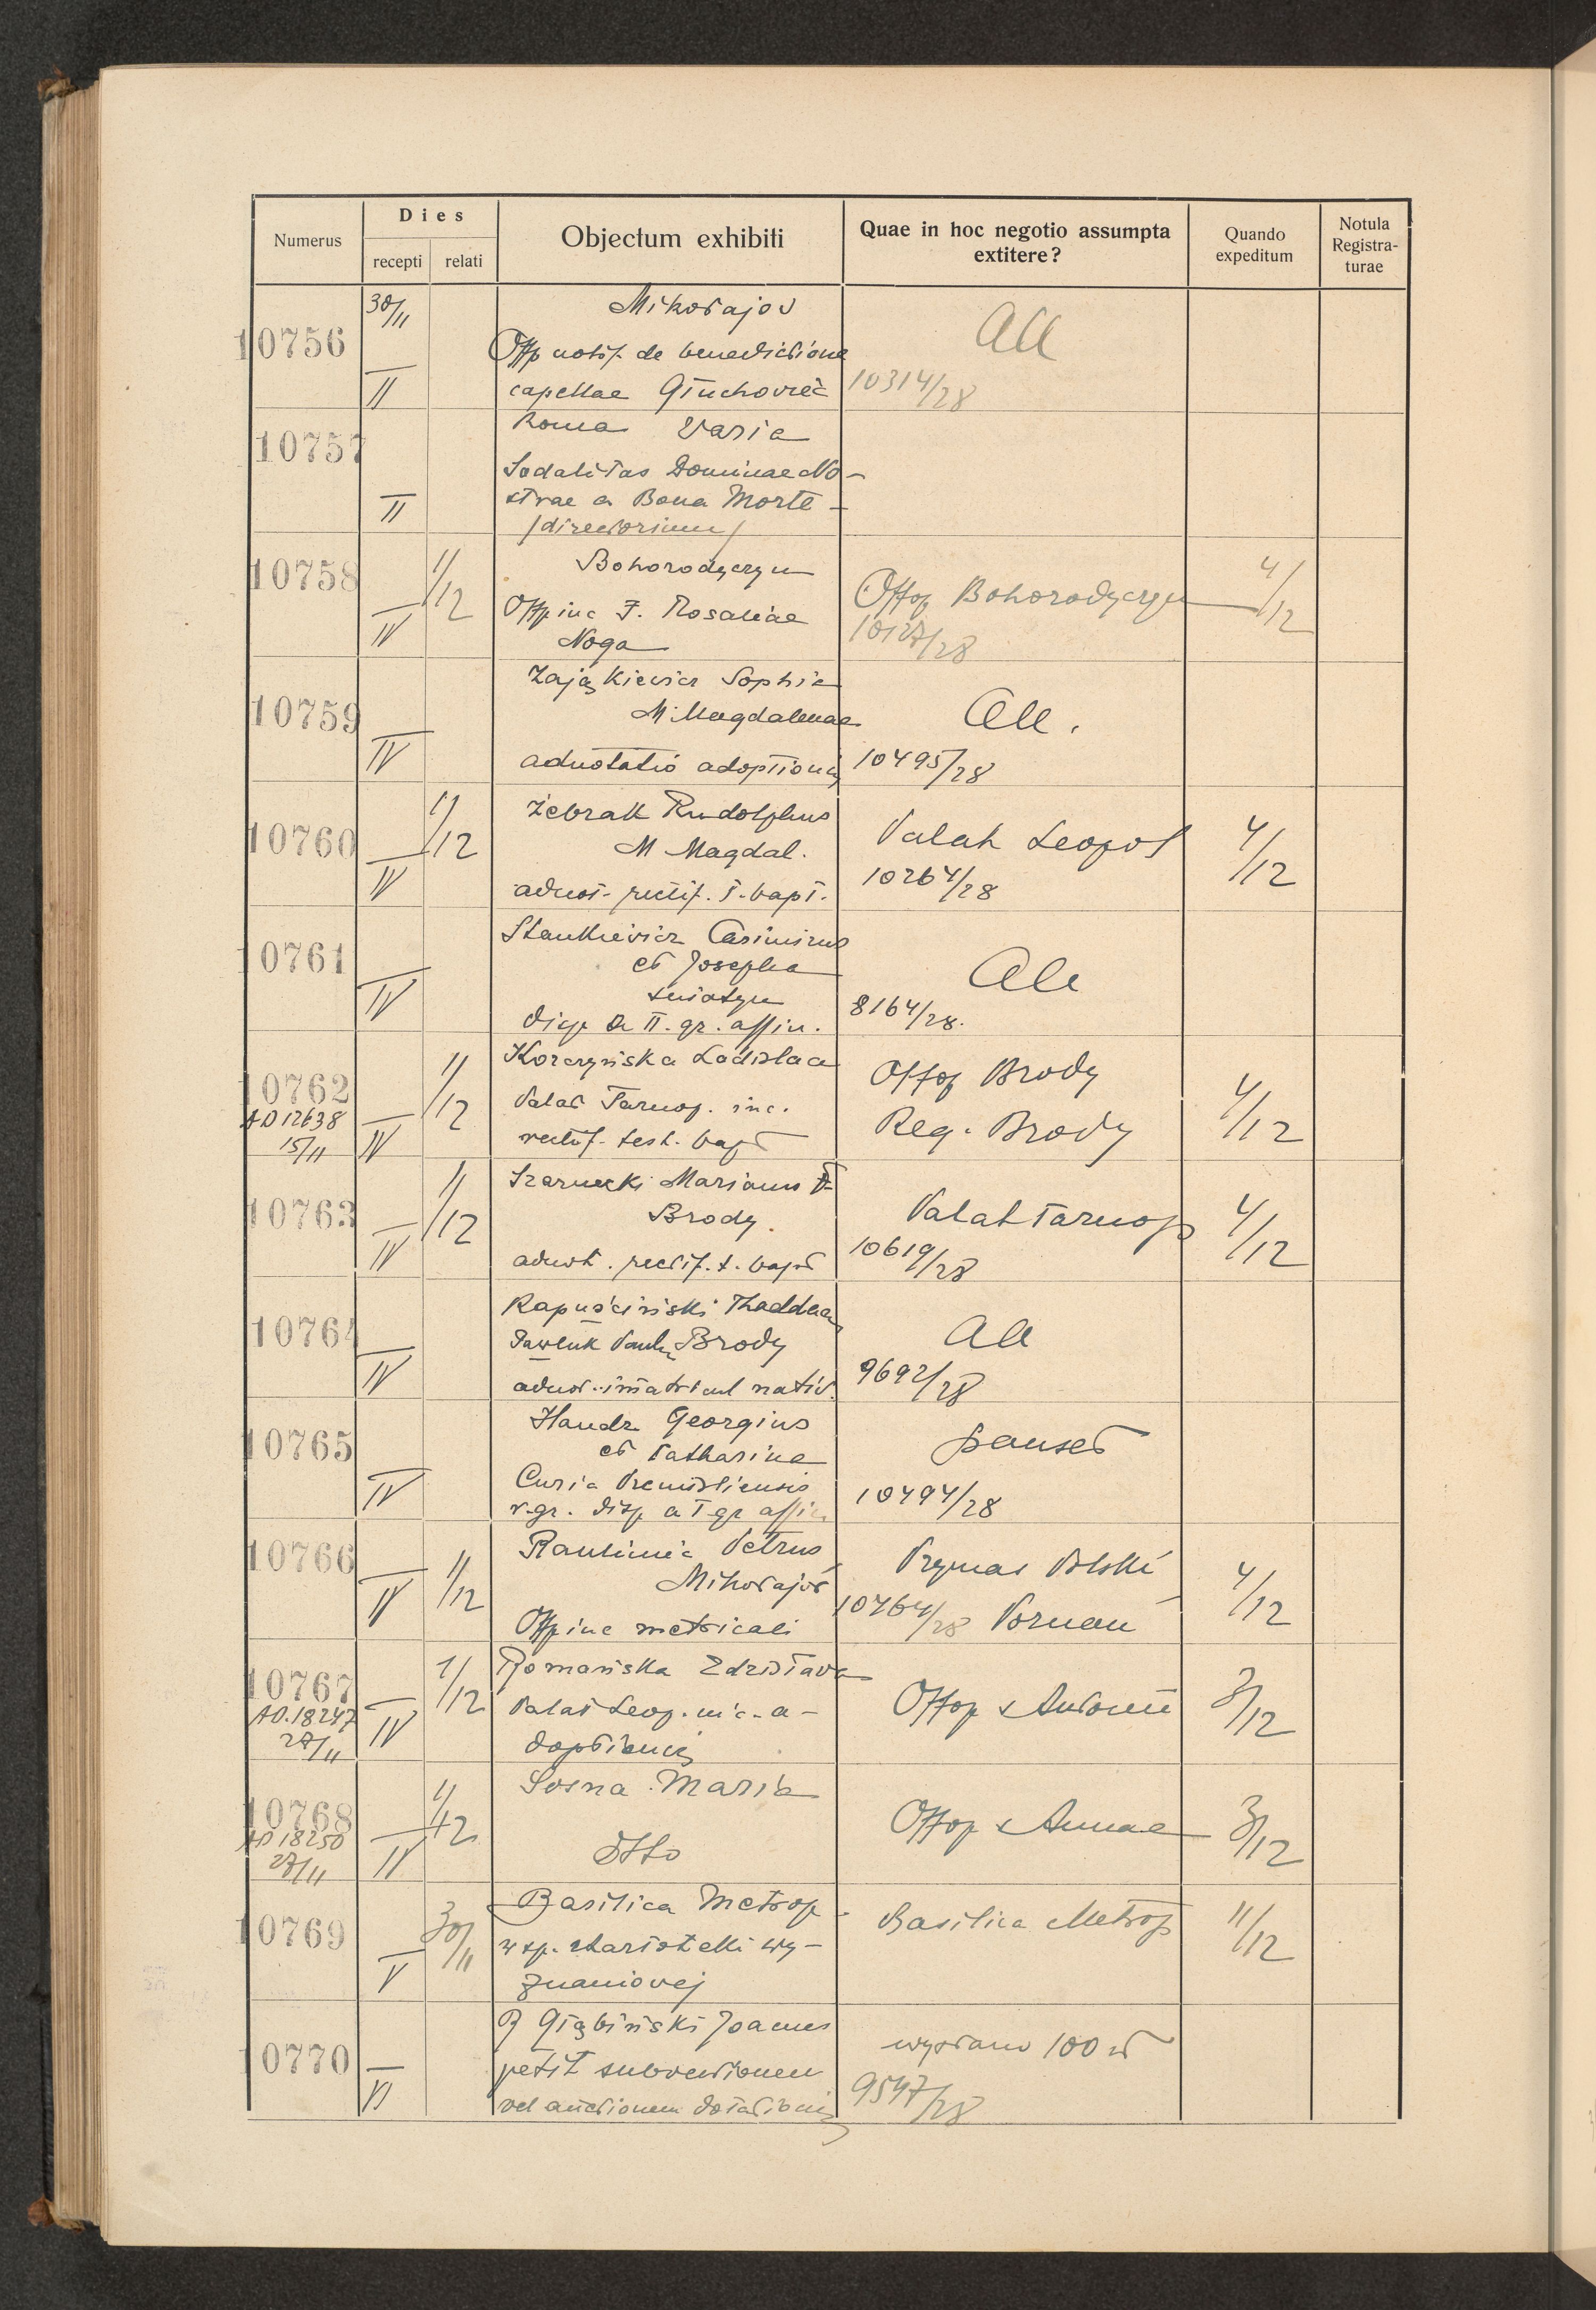 Numerus
Dies
recepti relati
Objectum exhibiti
Quae in hoc negotio assumpta
extitere?
Quando
expeditum
Notula
Registra-
turae
10756
30/11
II
Mikołajov
Offp notif. de benedictione
capellae Głuchowiec
All
10314/28
10757
II
Roma Varia
Sodalitas Dominae No-
strae a Bona Morte -
/directorium/
10758
IV
1/12
Bohorodyczyn
Offp inc F. Rosaliae
Noga
Offop Bohorodyczyn
10127/28
4/12
10759
IV
Zająkiewicz Sophia
M. Magdalenae
adnotatio adoptionis
All.
10495/28
10760
IV
1/12
Żebrak Rudolphus
M Magdal.
adnot. rectif. t. bapt.
Palat Leopol
10264/28
4/12
10761
IV
Stankiewicz Casimirus
et Josepha
Śniatyn
disp a II. gr. affin.
All
8164/28.
10762
AD 12638
15/11
IV
1/12
Korczyńska Ladislaa
Palat Tarnop. inc.
rectif. test. bapt
Offop Brody
Reg. Brody
4/12
10763
IV
1/12
Szarnecki Marianus
Brody.
adnot. rectif. t. bapt
Palat Tarnop
10619/28
4/12
10764
IV
Kapuściński Thaddaeus
Pawluk Paulus Brody
adnot. immatricul nativ.
All
9692/28
10765
IV
Handz Georgius
et Catharina
Curia Premisliensis
r. gr. disp a I gr affin
panset
10494/28
10766
IV
1/12
Petrus
Mikołajów
Offp inc metricali
Prymas Polski
10464/28 Poznań
4/12
10767
AD. 18247
27/11
IV
1/12
Romańska Zdzisława
Palat Leop. inc. a-
doptionis
Offop s Antonii
3/12
10768
AD 18250
27/11
IV
1/12
Sosna Maria
Dtto
Offop s Annae
3/12
10769
V
30/11
Basilica Metrop
w sp. wy-
znaniowej
Basilica Metrop
11/12
10770
VI
P Głąbiński Joannes
petit subventionem
vel auctionem dotationis
wysłano 100 zł
9547/28